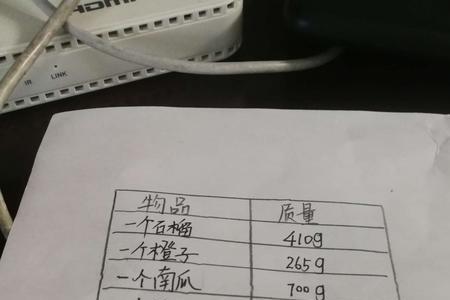 HDMI
IR LINK
物品 质量
一个石榴 410g
一个橙子 265g
一个南瓜 700g